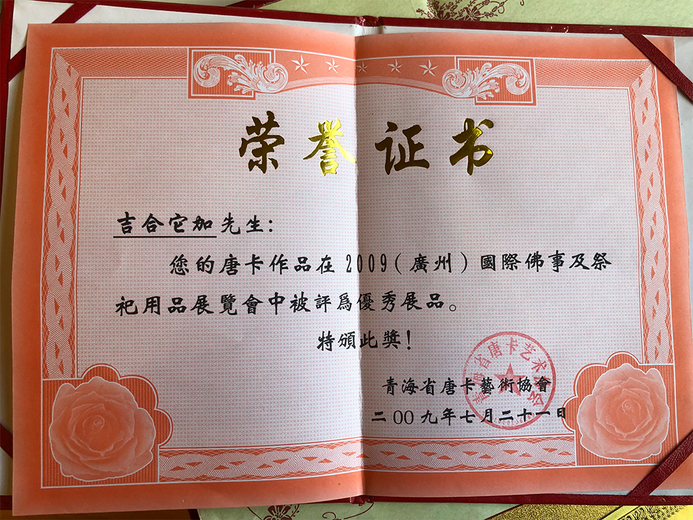 荣誉证书
吉合它加先生：
您的唐卡作品在2009（廣州）國際佛事及祭
祀用品展覽會中被評爲優秀展品。
特頒此獎！
青海省唐卡藝術協會
二00九年七月二十一日
青海省唐卡艺术协会